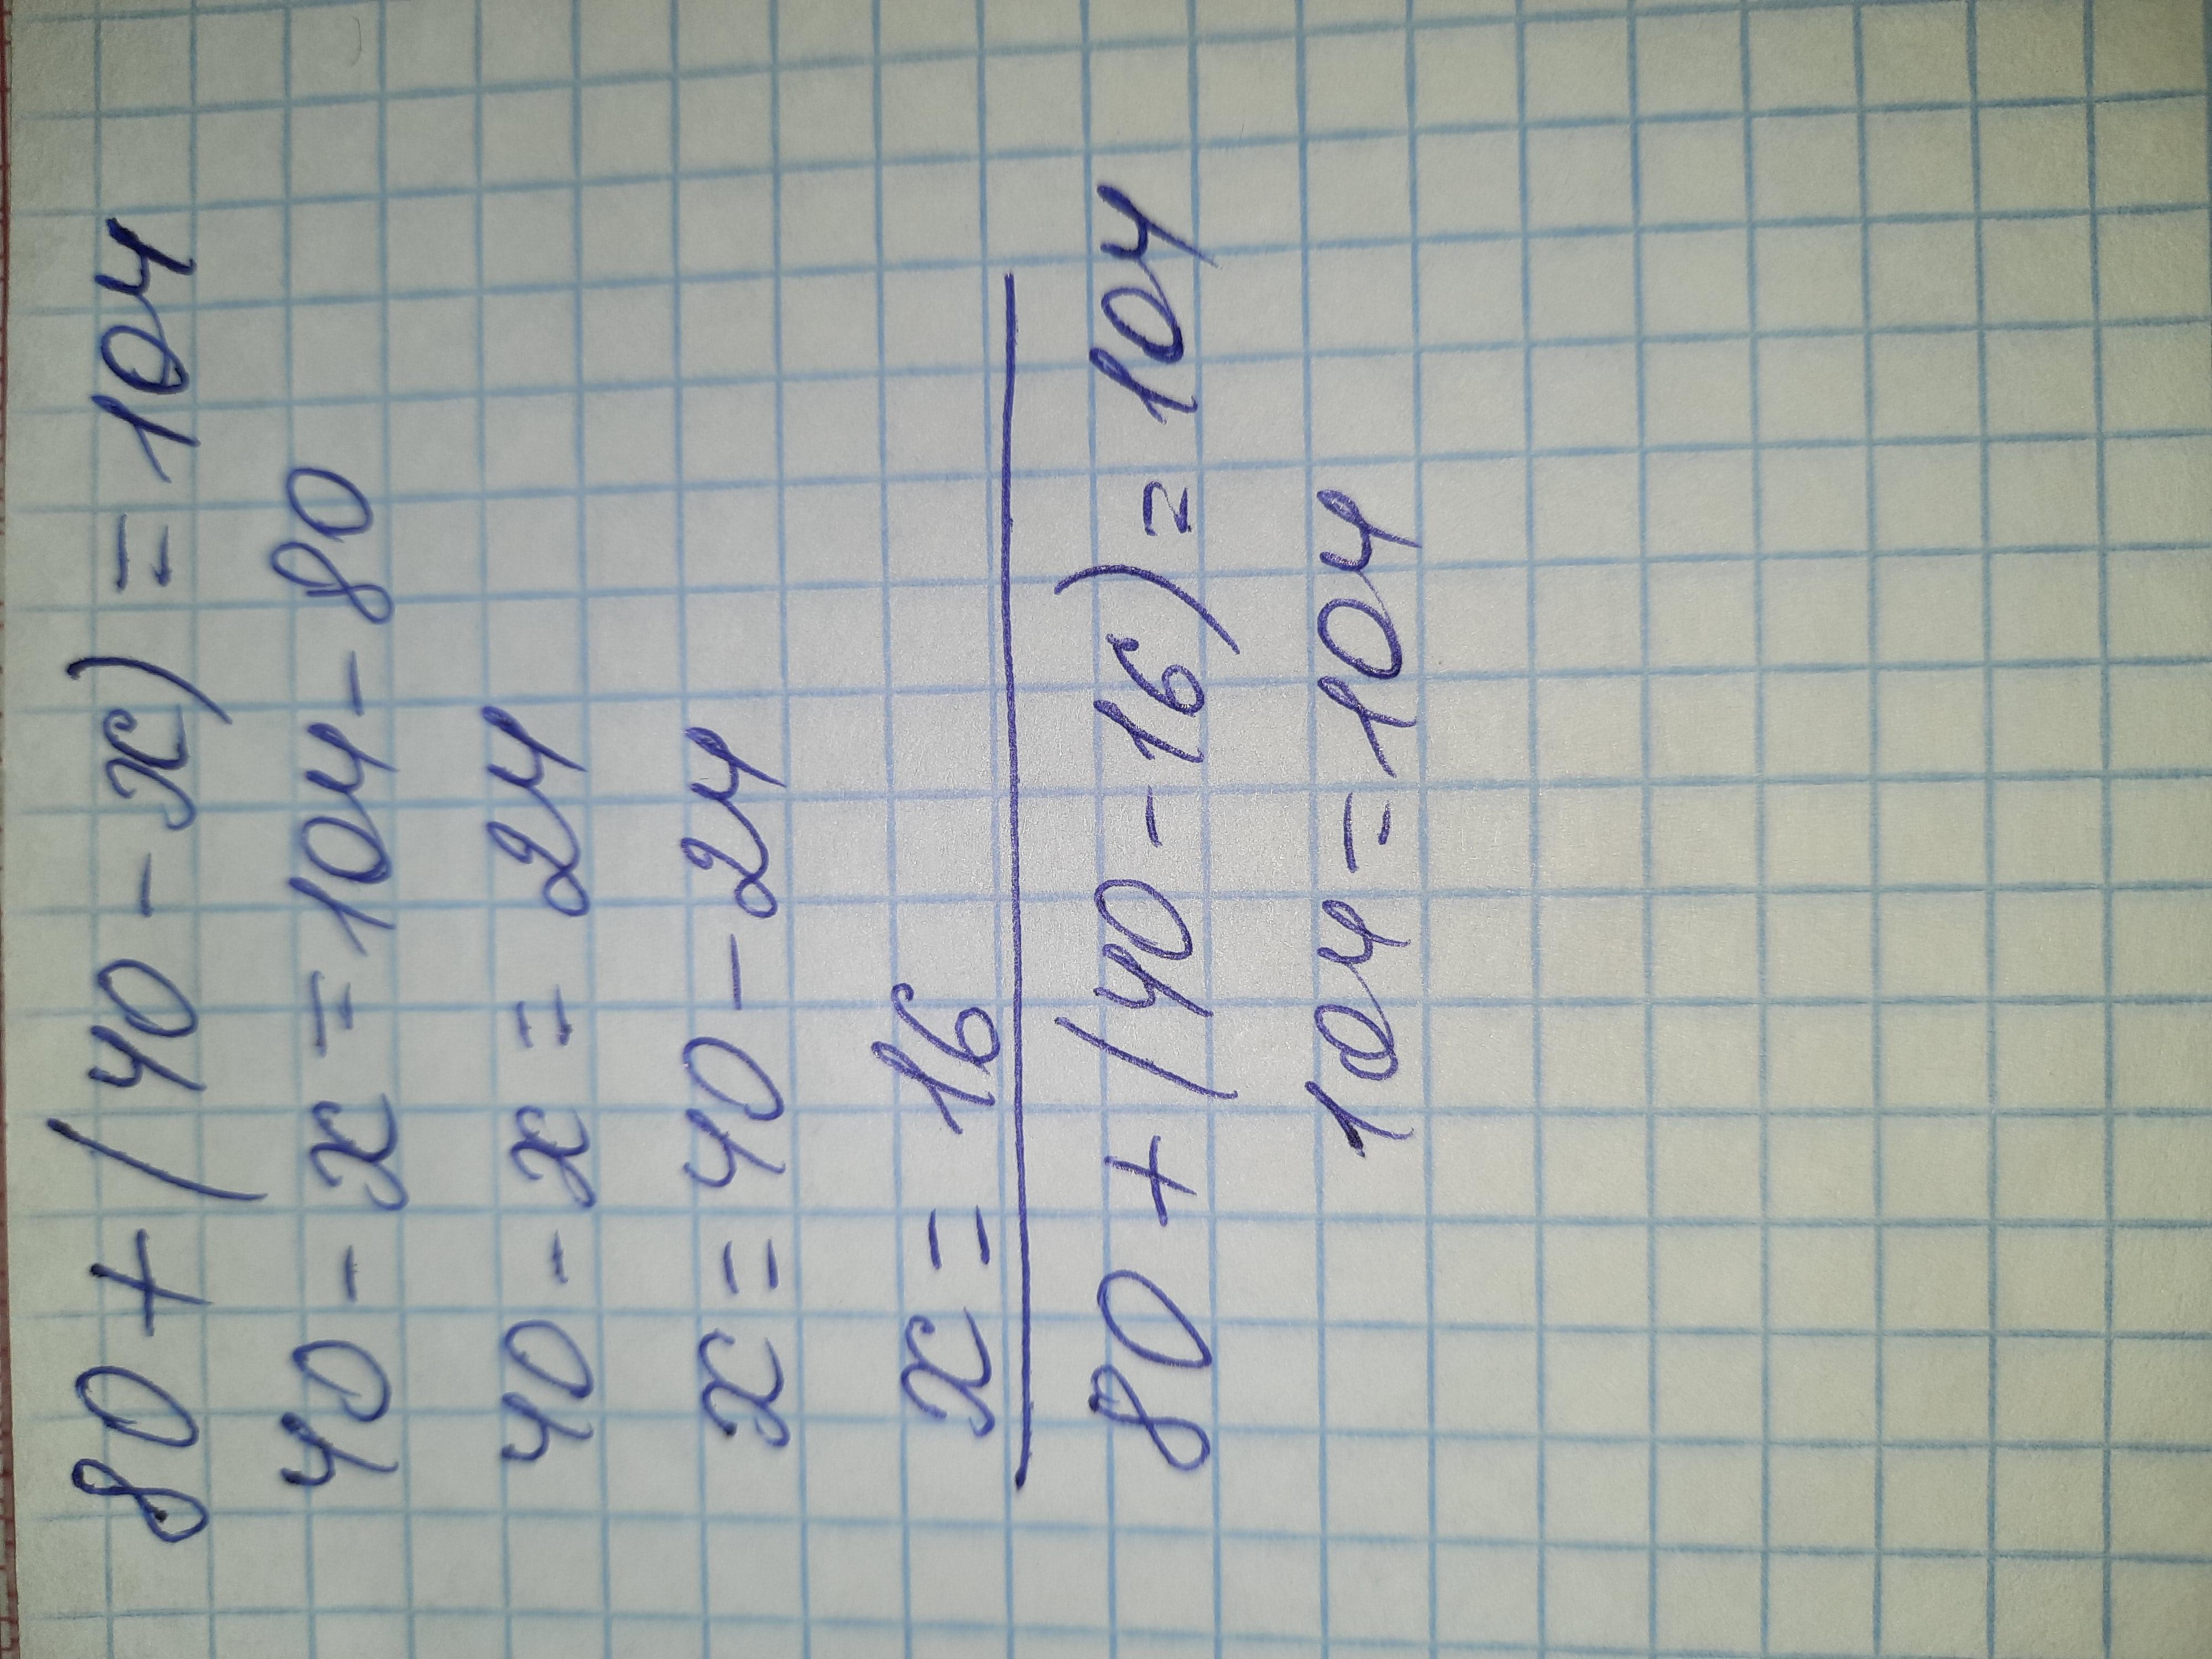 80 + (40 - x) = 104
40 - x = 104 - 80
40 - x = 24
x = 40 - 24
x = 16
80 + (40 - 16) = 104
104 = 104